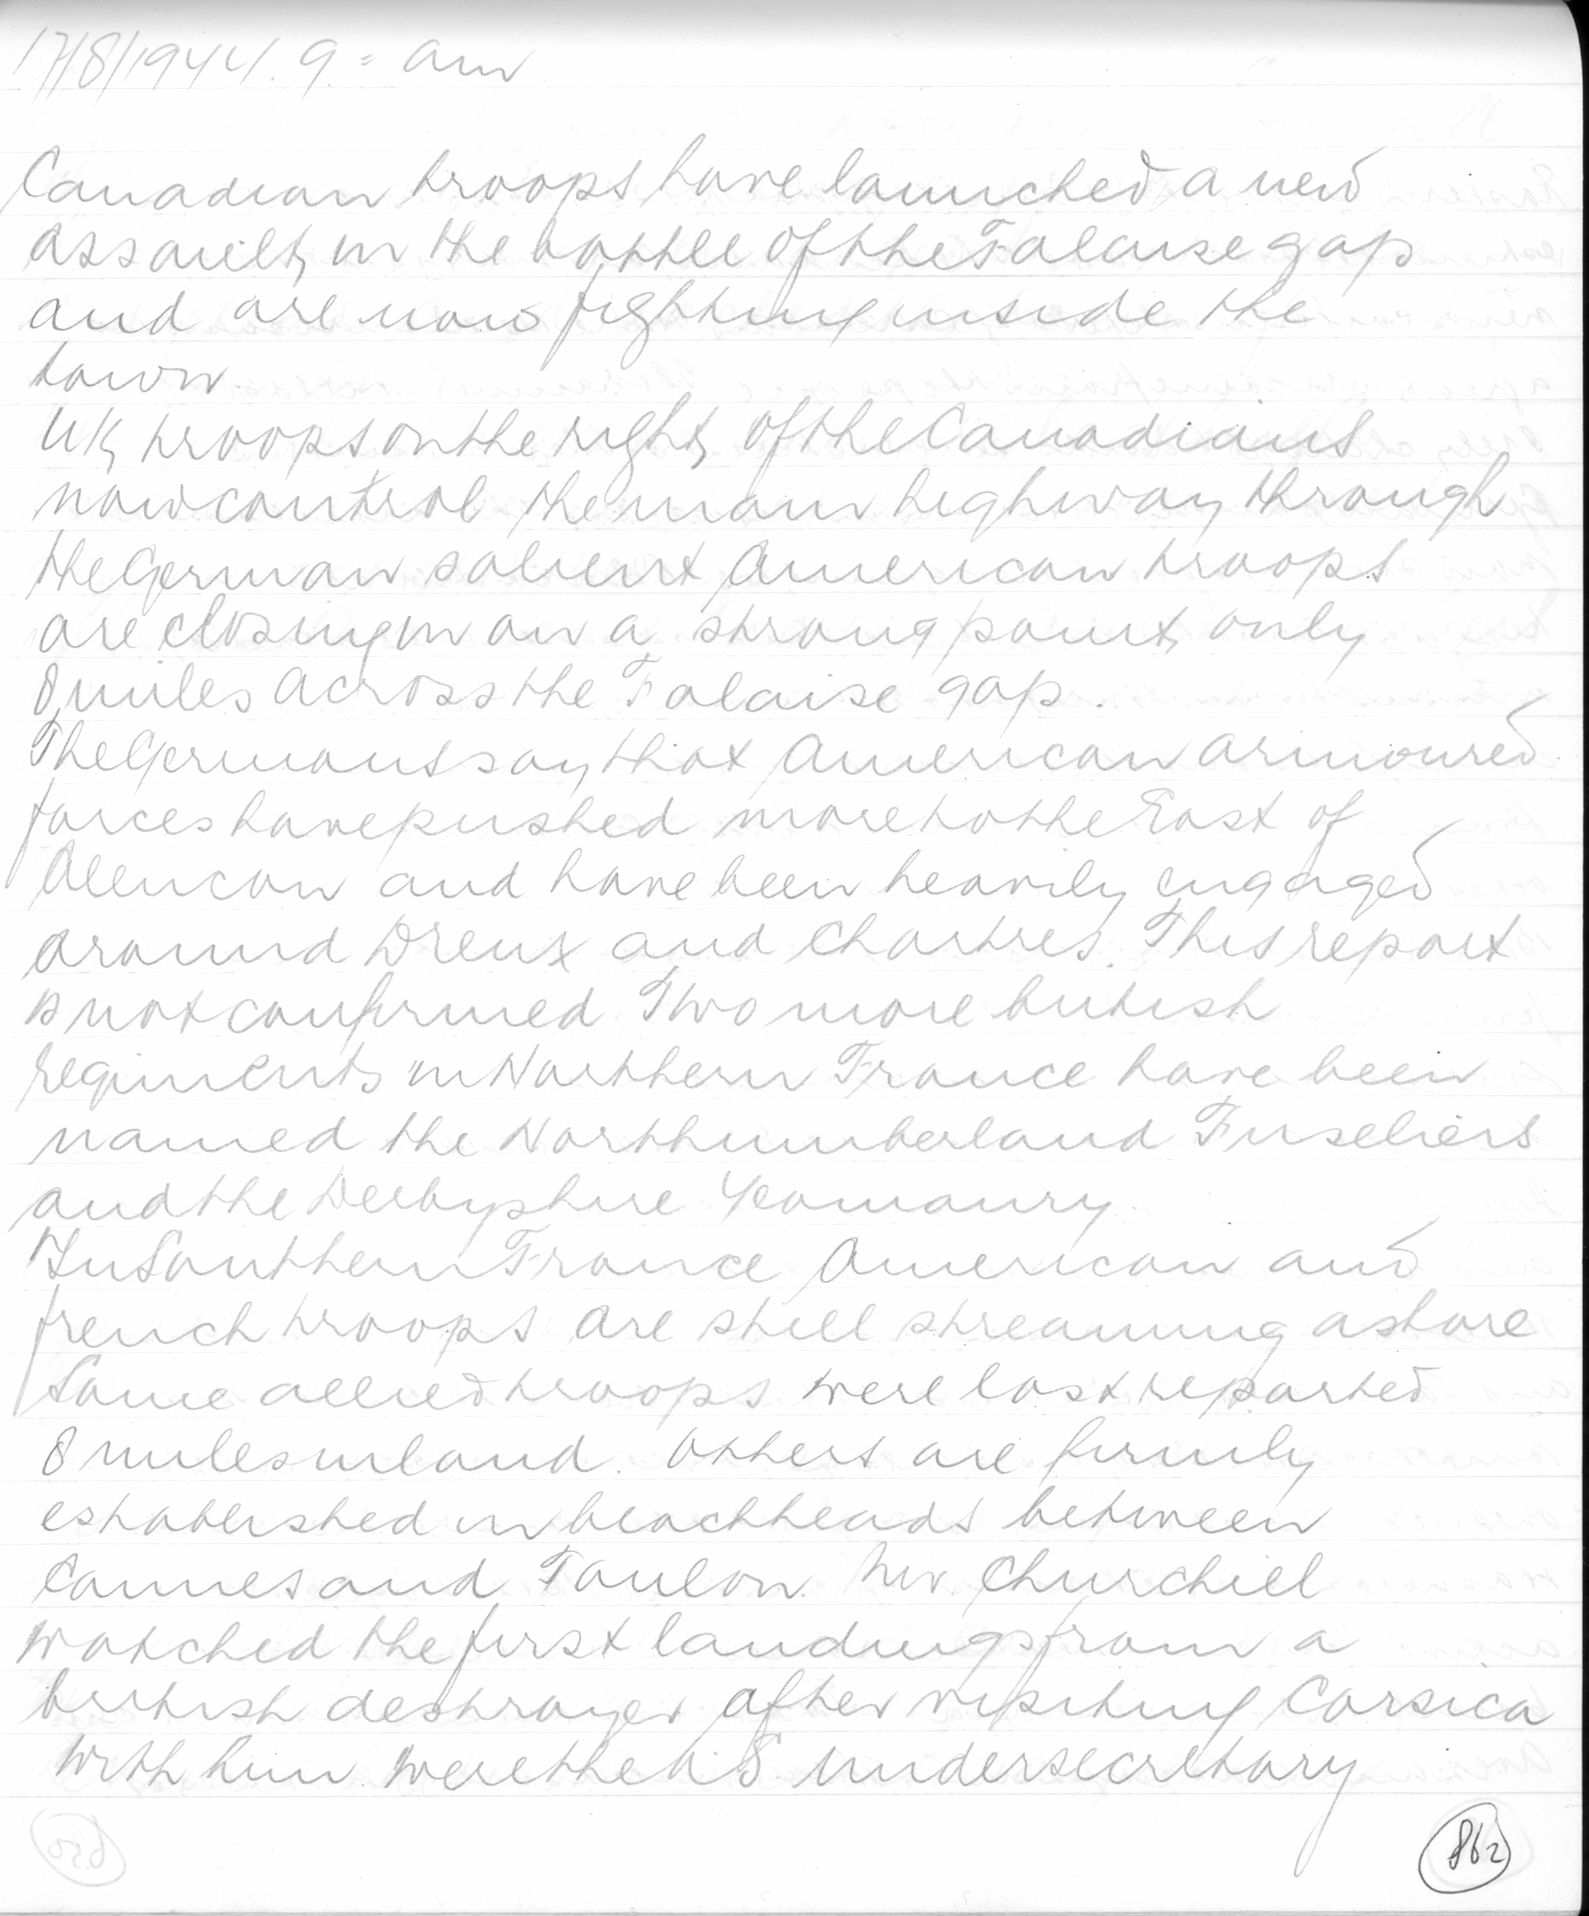 17/8/1944. 9.= am
Canadian troops have launched a new
assault, in the battle of the Falaise gap
and are now fighting inside the
town.
UK, troops on the right, of the Canadians
now control the main highway through
the German salient American troops
are closing in on a, strong point, only
8 miles across the Falaise gap.
The Germans say that American armoured
forces have pushed more to the East of
Alencon and have been heavily engaged
around Dreux and Chartres. This report
is not confirmed Two more british
regiments in Northern France have been
named the Northumberland Fuseliers
and the Derbyshire Yeomanry.
In Southern France American and
french troops are still streaming ashore
Some allied troops were last reported
8 miles inland. Others are firmly
established in beachheads between
Cannes and Toulon. Mr. Churchill
watched the first landings from a
british destroyer after visiting Corsica
With him were the U.S undersecretary
862